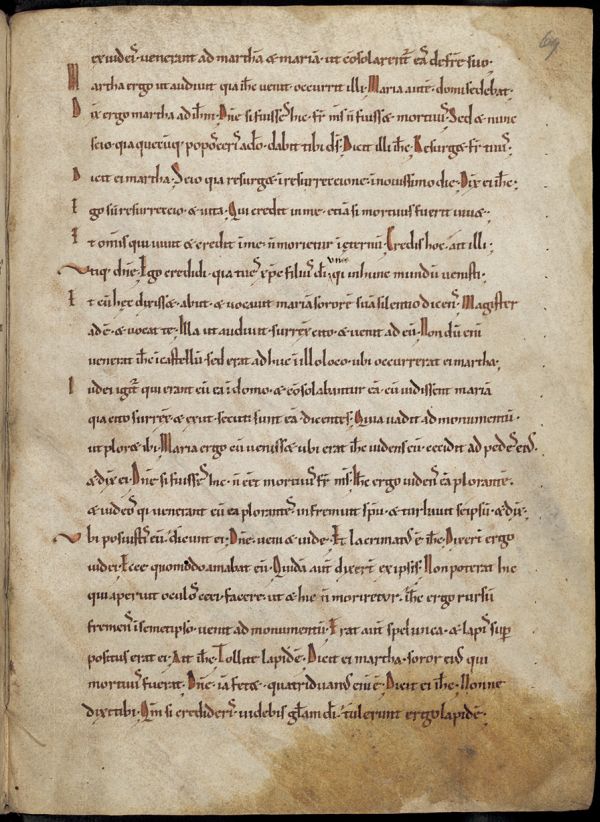 69
ex iudeis venerant ad martha & maria. ut cosolarent ea de fre suo.
Martha ergo ut audivit quia ihc venit. occurrit illi. Maria aute domi sedebat.
Dix ergo martha ad ihm. Dne si fuisses hic. fr ms n fuiss& mortuus. Sed & nunc
scio. quia quecuq poposceris a do. dabit tibi ds. Dicit illi ihc. Resurg& fr tuus.
Dicit ei martha. Scio quia resurg& i resurreccione. i novissimo die. Dix ei ihc.
Ego su resurreccio. & vita. Qui credit in me. etia si mortuus fuerit viv&.
Et omis qui vivit & credit i me. n morietur i eternu. Credis hoc. ait illi.
Utiq dne. Ego credidi. quia tu es xpc filius di vivi qui in hunc mundu venisti.
Et cu hec dixiss&. abiit. & vocavit maria sorore sua silentio dicens. Magister
ade. & vocat te. Illa ut audivit. surrex cito. & venit ad eu. Non du eni
venerat ihc i castellu. sed erat adhuc i illo loco. ubi occurrerat ei martha.
Iudei igit qui erant cu ea i domo. & cosolabantur ea. cu vidissent maria
quia cito surrex. & exiit. secuti sunt ea. dicentes. Quia vadit ad monumentu.
ut plor& ibi. Maria ergo cu veniss& ubi erat ihc videns eu. cecidit ad pedes eius.
& dix ei. Dne si fuisses hic. n e&t mortuus fr ms. Ihc ergo videns ea plorante.
& iudeos qui venerant cu ea plorantes. infremuit spu. & turbavit seipsu. & dix.
Ubi posuistis eu. dicunt ei. Dne. veni & vide. Et lacrimatus e ihc. Dixert ergo
iudei. Ecce quomodo amabat eu. Quida aut dixert ex ipsis. Non poterat hic
qui aperuit oculos ceci. facere. ut & hic n moriretur. ihc ergo rursu
fremens i semetipso. venit ad monumentu. Erat aut spelunca. & lapis sup
positus erat ei. Ait ihc. Tollite lapide. Dicit ei martha. soror eius qui
mortuus fuerat. Dne. ia fet&. quatriduanus eni e. Dicit ei ihc. Nonne
dixi tibi. Qm si credideris. videbis glam di. tulerunt ergo lapide.